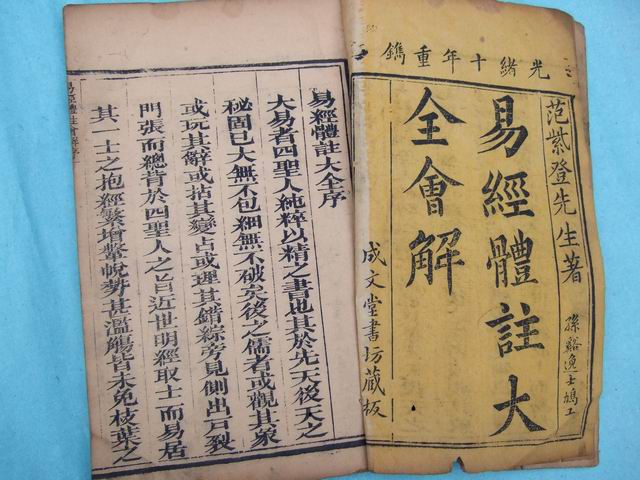 光緒十年重鐫
范紫登先生著
易經體註大
全會解
成文堂書坊藏板
易經體註大全序
大易者四聖人純粹以精之書也其於先天後天之
秘固已大無不包細無不破矣後之儒者或觀其象
或玩其辭或拈其變占或理其錯綜旁見側出戶裂
門張而總背於四聖人之旨近世明經取士而易居
其一士之抱經繁增鞶帨勢甚濫觴皆未免枝葉之